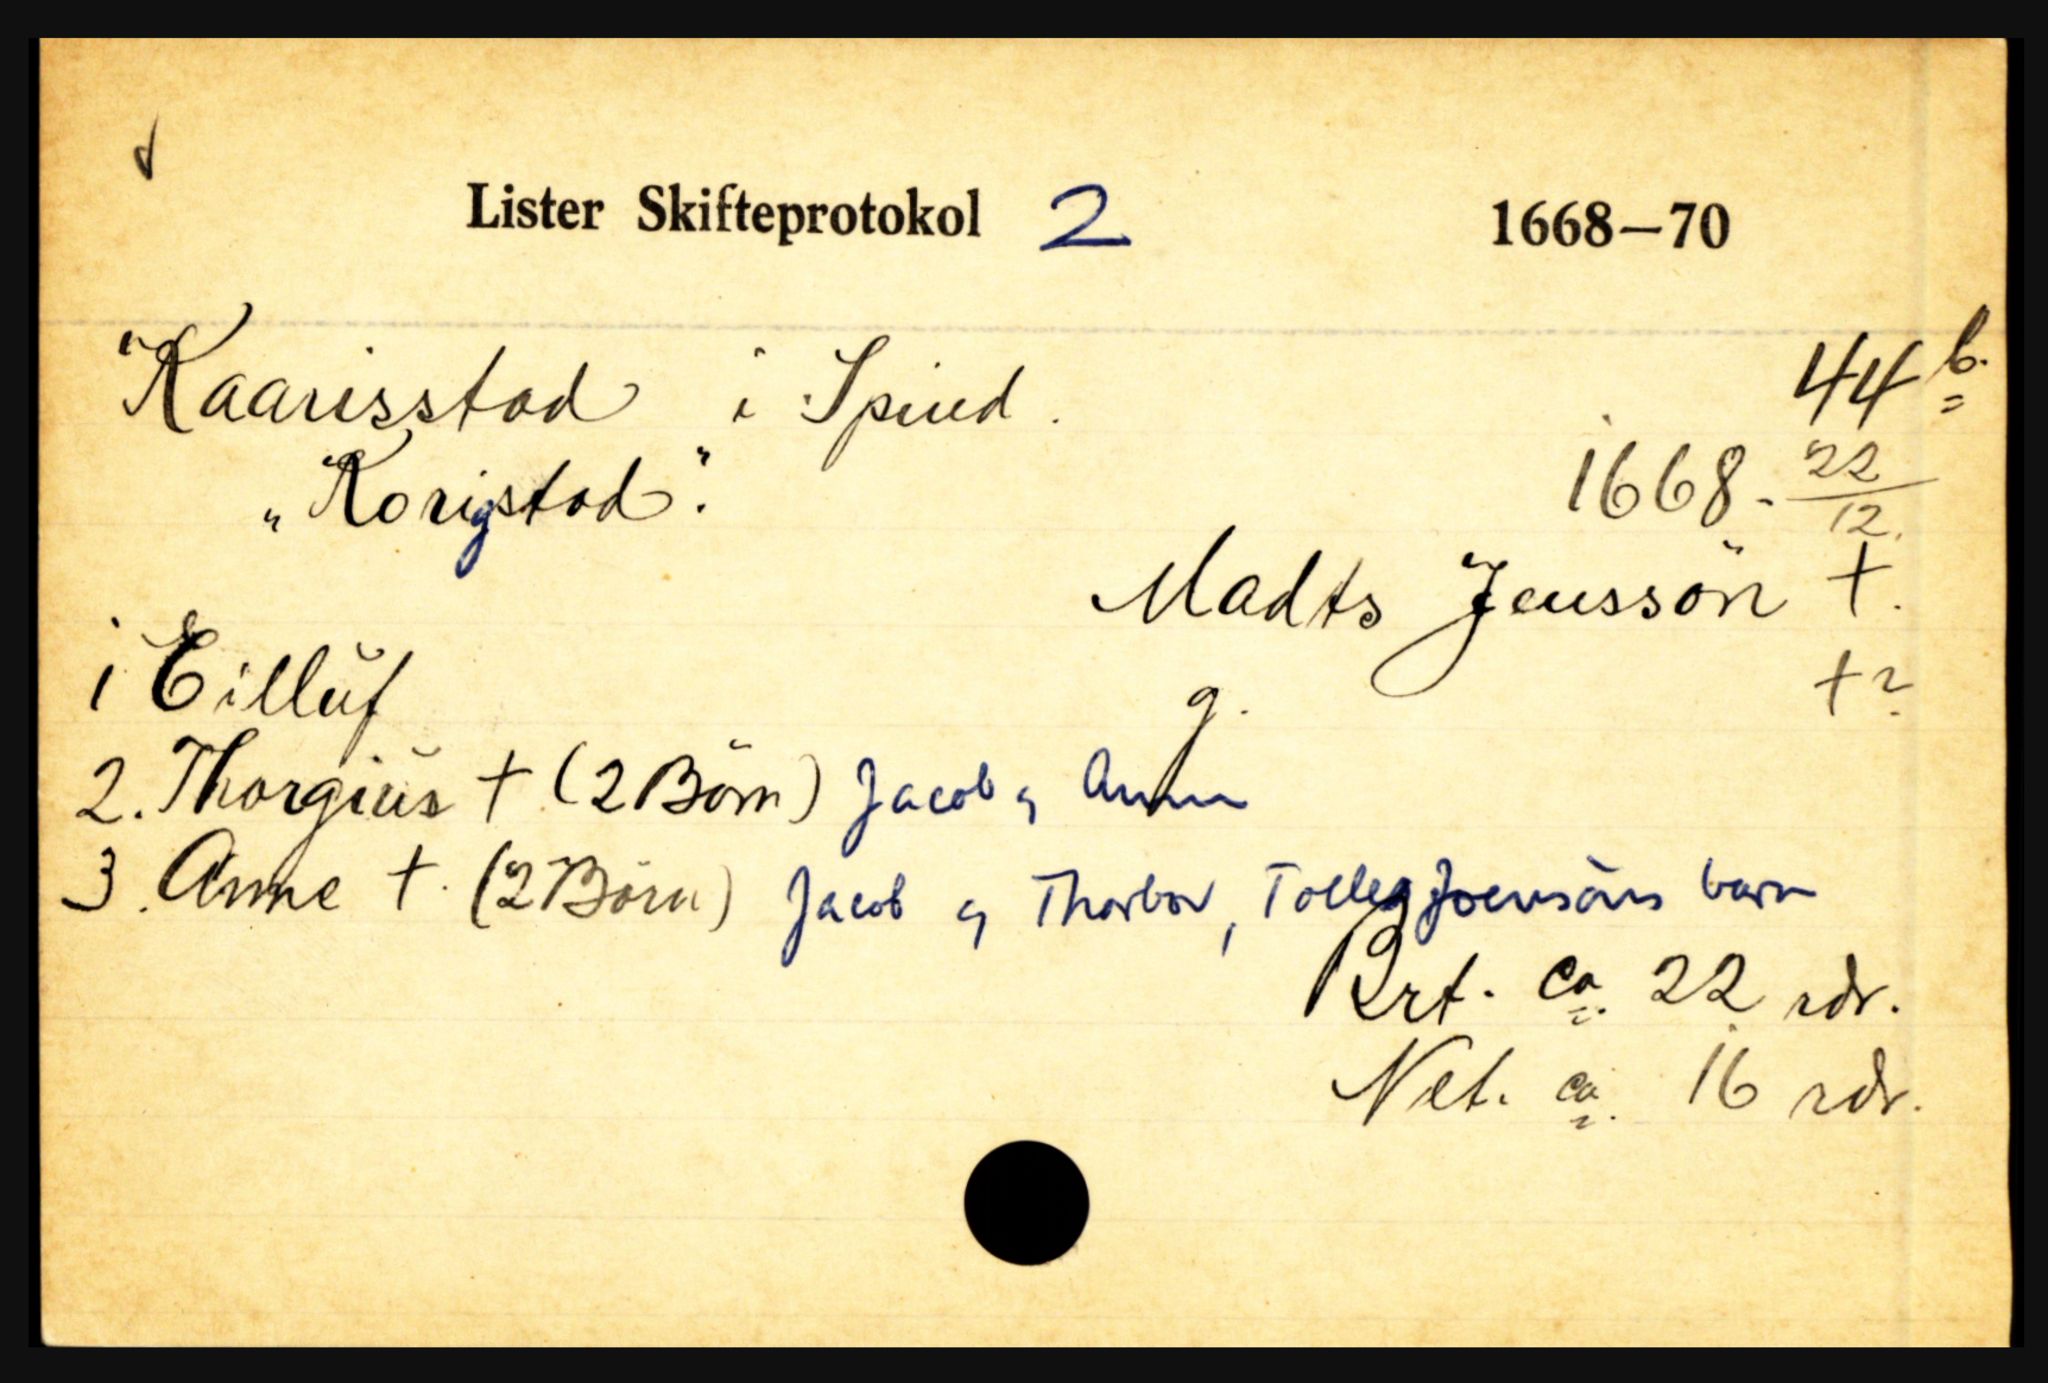 Lister Skifteprotokol 2 1668—70
"Kaarisstad i Spind. 44 b.
„Korigstad". 1668. 22/12.
Madts Jenssön +.
1 Eilluf g. +?
2. Thorgius + (2 Börn) Jacob og Anne
3. Anne +. (2 Börn) Jacob og Thorbor, Tolleg Joensöns barn
Brt. ca. 22 rdr.
Net. ca. 16 rdr.